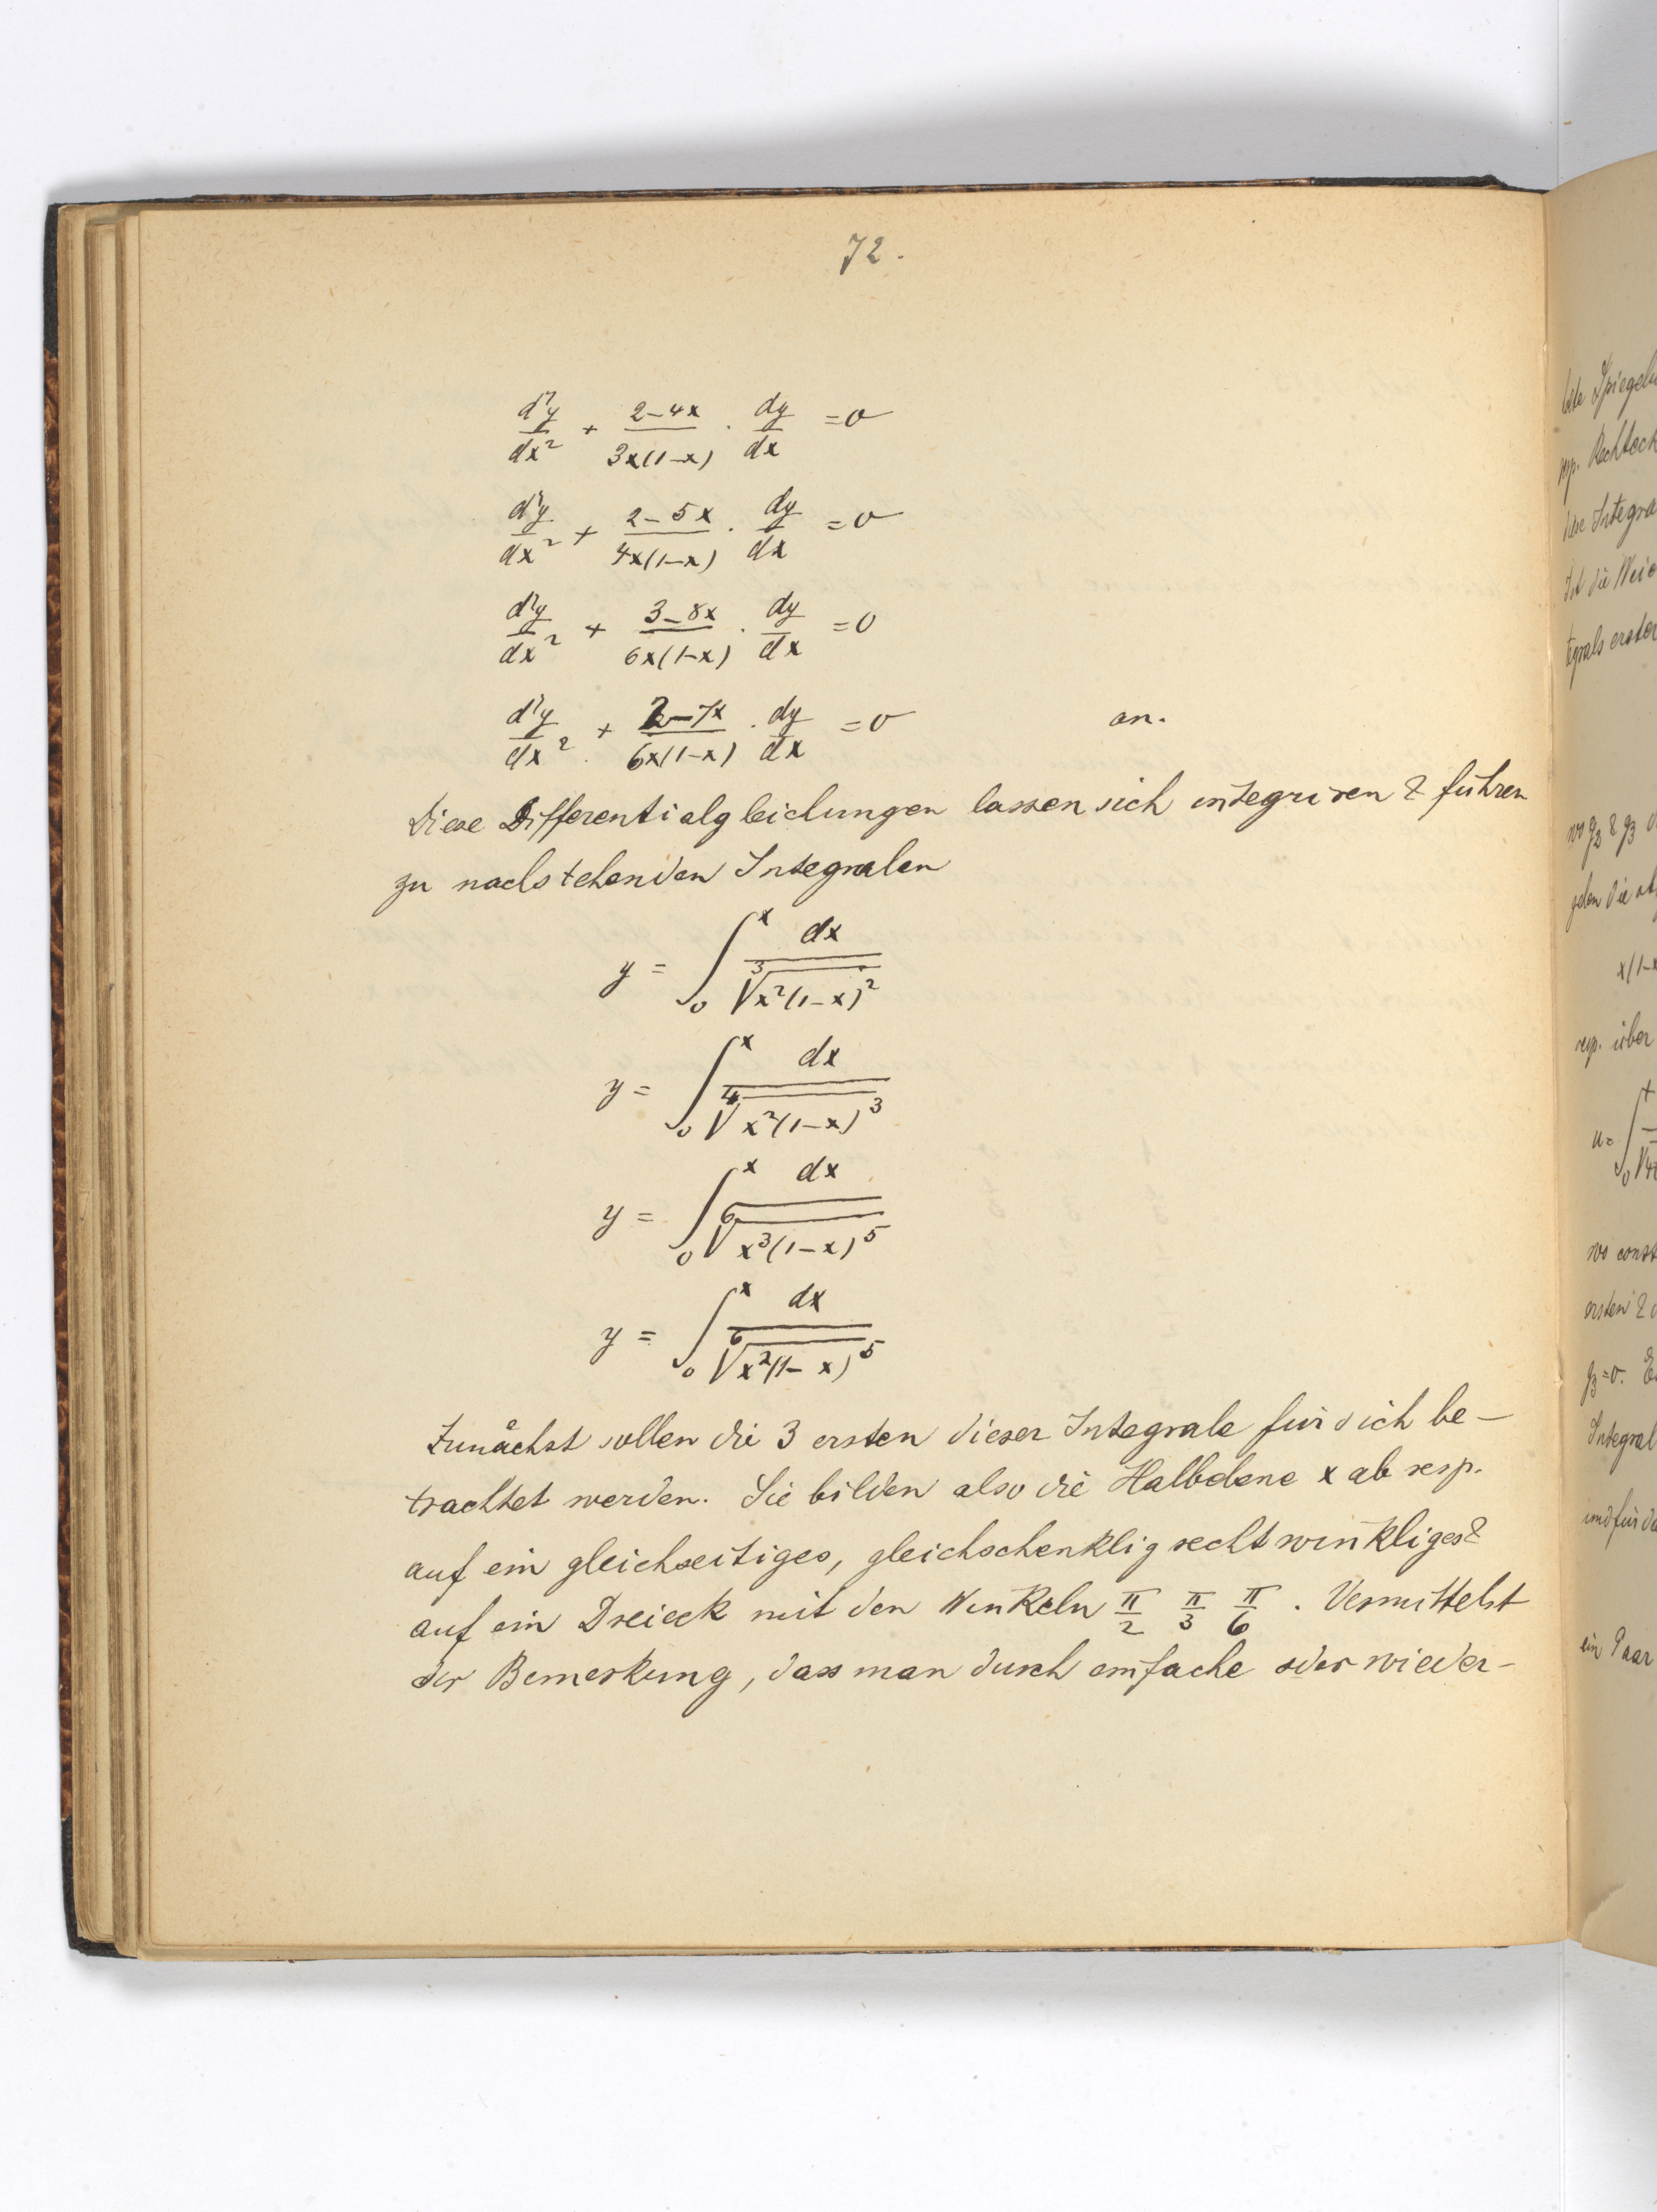 72.
d²y/dx² + (2-4x)/(3x(1-x)) · dy/dx = 0
d²y/dx² + (2-5x)/(4x(1-x)) · dy/dx = 0
d²y/dx² + (3-8x)/(6x(1-x)) · dy/dx = 0
d²y/dx² + (2-7x)/(6x(1-x)) · dy/dx = 0 an.
Diese Differentialgleichungen lassen sich integriren & führen
zu nachstehenden Integralen
y = ∫₀ˣ dx/∛(x²(1-x)²)
y = ∫₀ˣ dx/∜(x²(1-x)³)
y = ∫₀ˣ dx/⁶√(x³(1-x)⁵)
y = ∫₀ˣ dx/⁶√(x²(1-x)⁵)
Zunächst sollen die 3 ersten dieser Integrale für sich be-
trachtet werden. Sie bilden also die Halbebene x ab resp.
auf ein gleichseitiges, gleichschenklig rechtwinkliges &
auf ein Dreieck mit den Winkeln π/2 π/3 π/6. Vermittelst
der Bemerkung, dass man durch einfache oder wieder-
Spiegel
resp. Rechteck
Integra
ist die
tegrals erster
wo g₂ & g₃
die
x(1-x
resp. über
u=∫₀
wo const
ersten &
g₃=0.
Integral
und für
ein Paar